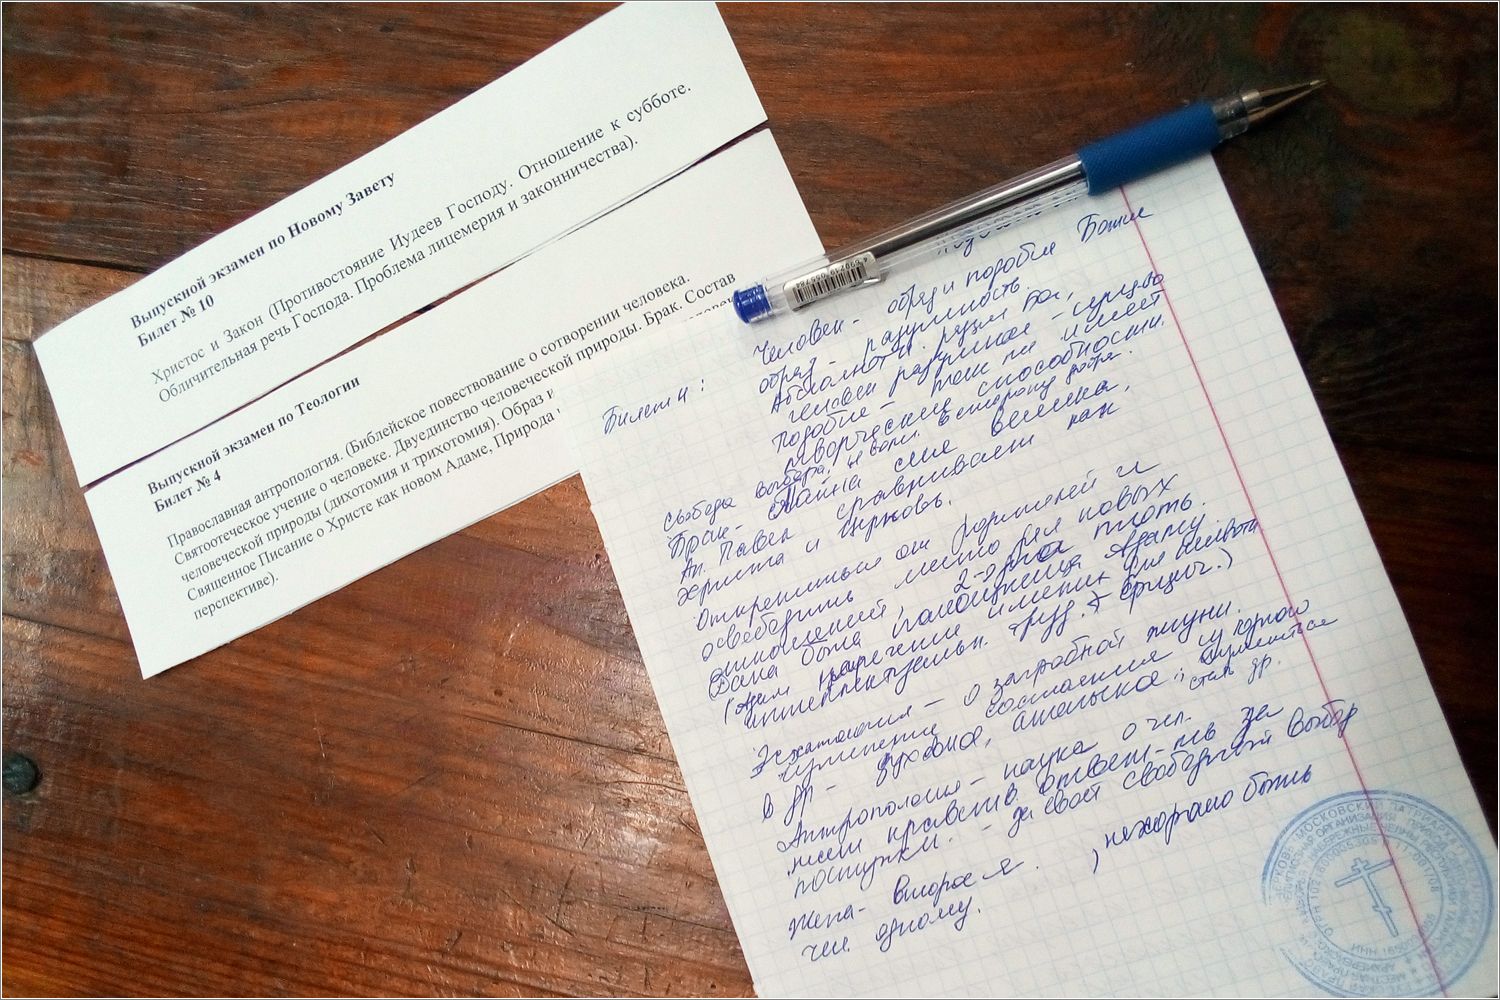 Выпускной экзамен по Новому Завету
Билет № 10
Христос и Закон (Противостояние Иудеев Господу. Отношение к субботе.
Обличительная речь Господа. Проблема лицемерия и законничества).
Выпускной экзамен по Теологии
Билет № 4
Православная антропология. (Библейское повествование о сотворении человека.
Святоотеческое учение о человеке. Двуединство человеческой природы. Брак. Состав
человеческой природы (дихотомия и трихотомия). Образ и
священное Писание о Христе как новом Адаме, Природа
перспективе).
Билет 4:
Человек - образ и подобие Божие
образ - разумность.
Абсолютн. разум Бог,
человек разумное - существо
подобие - тоже имеет
творческие способности.
свобода выбора, воли. в сторону добра.
Брак - Тайна сия велика,
Ап. Павел сравнивает как
Христа и Церковь.
Открепиться от родителей и
освободить место для новых
отношений, 2-е одна плоть.
Дана была помощница Адаму
(Адам наречение имени для животн
интеллектуальн. труд. + физич.)
Эсхатология - о загробной жизни.
изменение состояния из одного
в др - духовное, ангельское;
стать др.
Антропология - наука о чел.
несет нравств. ответ-ть за
поступки. - за свой свободный выбор
Жена - второе я. , нехорошо быть
чел. одному.